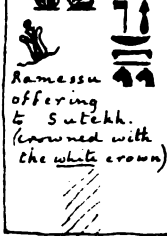 Ramessu
offering
to Sutekh.
(crowned with
the white crown)